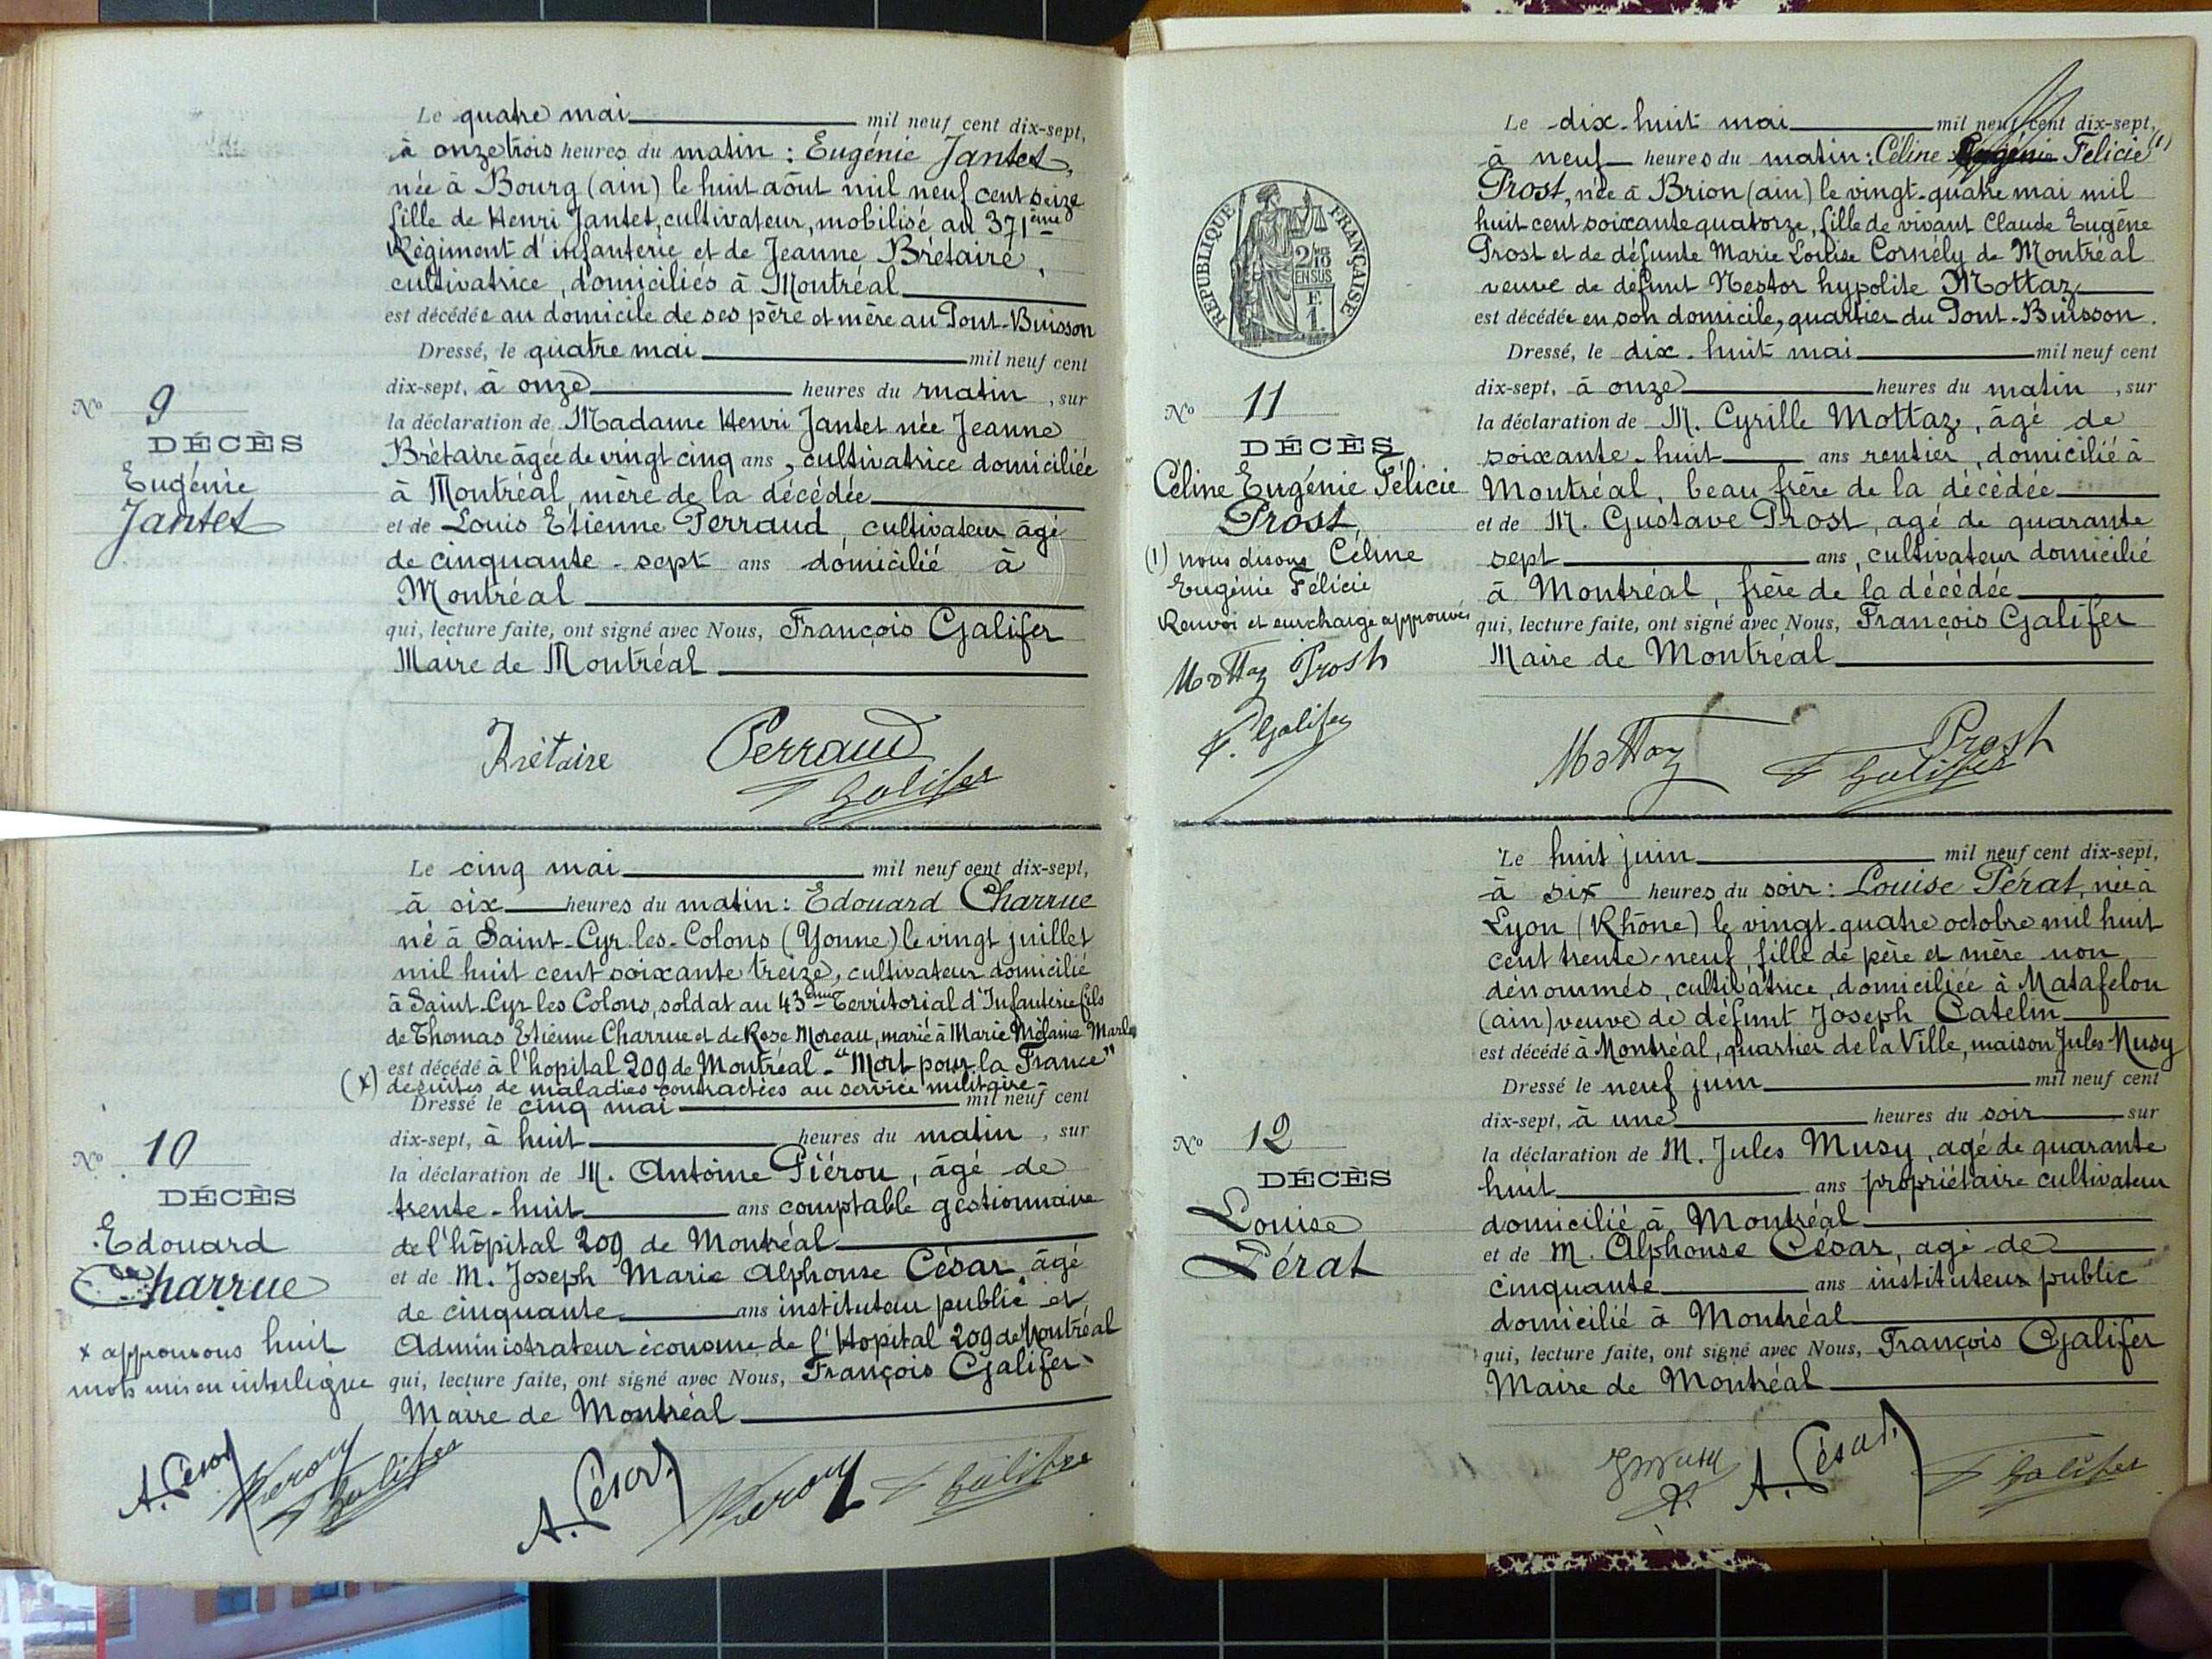 Le quatre mai mil neuf cent dix-sept,
à onze trois heures du matin : Eugénie Jantet,
née à Bourg (ain) le huit août mil neuf cent seize
fille de Henri Jantet, cultivateur, mobilisé au 371ème
Régiment d'infanterie et de Jeanne Brétaire,
cultivatrice, domiciliés à Montréal
est décédée au domicile de ses père et mère au Pont-Buisson
Dressé, le quatre mai mil neuf cent
dix-sept, à onze heures du matin, sur
la déclaration de Madame Henri Jantet née Jeanne
Brétaire âgée de vingt cinq ans, cultivatrice domiciliée
à Montréal, mère de la décédée
et de Louis Etienne Perraud, cultivateur âgé
de cinquante-sept ans domicilié à
Montréal
qui, lecture faite, ont signé avec Nous, François Galifer
Maire de Montréal
No 9
DÉCÈS
Eugénie
Jantet
Brétaire Perraud
F Galifer
Le cinq mai mil neuf cent dix-sept,
à six heures du matin : Edouard Charrue
né à Saint-Cyr-les-Colons (Yonne) le vingt juillet
mil huit cent soixante treize, cultivateur domicilié
à Saint-Cyr les Colons, soldat au 43ème Territorial d'Infanterie fils
de Thomas Etienne Charrue et de Rose Moreau, marié à Marie Mélanie
est décédé à l'hopital 209 de Montréal - "Mort pour la France"
(x) des suites de maladies contractées au service militaire -
Dressé le cinq mai mil neuf cent
dix-sept, à huit heures du matin, sur
la déclaration de M. Antoine Piérou, âgé de
trente-huit ans comptable gestionnaire
de l'hôpital 209 de Montréal
et de M. Joseph Marie Alphonse César âgé
de cinquante ans instituteur public et
Administrateur économe de l'Hopital 209 de Montréal
qui, lecture faite, ont signé avec Nous, François Galifer
Maire de Montréal
No 10
DÉCÈS
Edouard
Charrue
x approuvons huit
mots mis en interligne
A. César F Galifer
A. César F Galifer
Le dix-huit mai mil neuf cent dix-sept,
à neuf heures du matin : Céline Eugénie Félicie (1)
Prost, née à Brion (ain) le vingt-quatre mai mil
huit cent soixante quatorze, fille de vivant Claude Eugène
Prost et de défunte Marie Louise Cornély de Montréal
veuve de défunt Nestor hypolite Mottaz
est décédée en son domicile, quartier du Pont-Buisson.
Dressé, le dix-huit mai mil neuf cent
dix-sept, à onze heures du matin, sur
la déclaration de M. Cyrille Mottaz, âgé de
soixante-huit ans rentier, domicilié à
Montréal, beau frère de la décédée
et de M. Gustave Prost, agé de quarante
sept ans, cultivateur domicilié
à Montréal, frère de la décédée
qui, lecture faite, ont signé avec Nous, François Galifer
Maire de Montréal
RÉPUBLIQUE FRANÇAISE
2/10 EN SUS
F.
1.
No 11
DÉCÈS
Céline Eugénie Félicie
Prost,
(1) nous disons Céline
Eugénie Félicie
Renvoi et surcharge approuvés
Mottaz Prost
F. Galifer
Mottaz Prost
F Galifer
Le huit juin mil neuf cent dix-sept,
à six heures du soir : Louise Pérat, née à
Lyon (Rhône) le vingt-quatre octobre mil huit
cent trente-neuf, fille de père et mère non
dénommés, cultivatrice, domiciliée à Matafelon
(ain) veuve de défunt Joseph Catelin
est décédé à Montréal, quartier de la Ville, maison Jules Musy
Dressé le neuf juin mil neuf cent
dix-sept, à une heures du soir sur
la déclaration de M. Jules Musy, agé de quarante
huit ans propriétaire cultivateur
domicilié à Montréal
et de M. Alphonse César, agé de
cinquante ans instituteur public
domicilié à Montréal
qui, lecture faite, ont signé avec Nous, François Galifer
Maire de Montréal
No 12
DÉCÈS
Louise
Pérat
A. César F Galifer